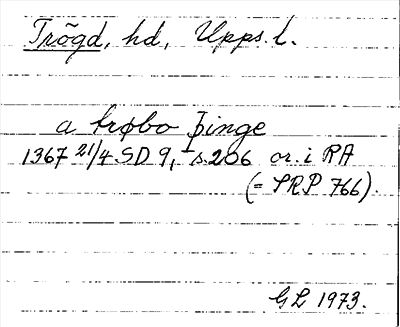 Trõgd, hd, Upps. l.
a trøbo þinge
1367 21/4. SD 9, s. 206 or. i RA
(= SRP 766).
GL 1973.